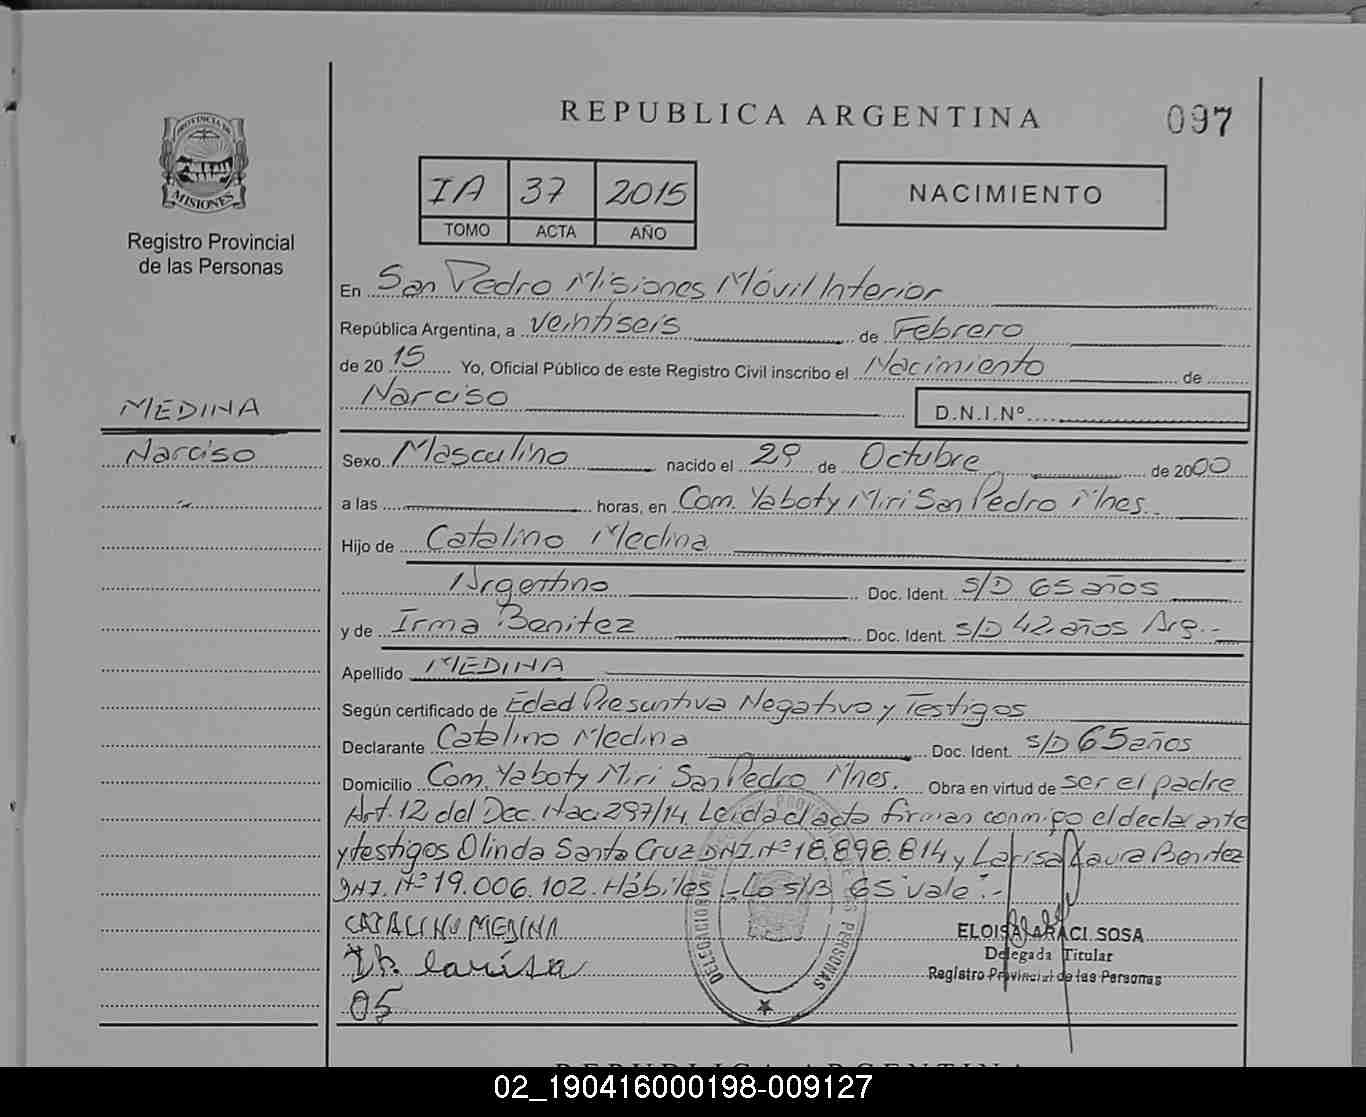 REPUBLICA ARGENTINA
097
PROVINCIA DE
MISIONES
Registro Provincial
de las Personas
IA 37 2015
TOMO ACTA AÑO
NACIMIENTO
En San Pedro Misiones Móvil Interior
República Argentina, a veintiseis de Febrero
de 2015 Yo, Oficial Público de este Registro Civil inscribo el Nacimiento de
Narciso D.N.I.Nº
MEDINA
Narciso
Sexo Masculino nacido el 29 de Octubre de 2000
a las horas, en Com. Yaboty Miri San Pedro Mnes.
Hijo de Catalino Medina
Argentino Doc. Ident. S/D 65 años
y de Irma Benitez Doc. Ident. S/D 42 años Arg.-
Apellido MEDINA
Según certificado de Edad Presuntiva Negativo y Testigos
Declarante Catalino Medina Doc. Ident. S/D 65 años
Domicilio Com. Yaboty Miri San Pedro Mnes. Obra en virtud de ser el padre
Art. 12 del Dec. Nac. 297/14. Leida el acta firman conmigo el declarante
y testigos Olinda Santa Cruz DNI. Nº 18.898.814 y Larisa Laura Benitez
DNI. Nº 19.006.102. Hábiles.- Lo S/B 65 vale:-
CATALINO MEDINA
larisa
OS
ELOISA ARACI SOSA
Delegada Titular
Registro Provincial de las Personas
REPUBLICA ARGENTINA
02_190416000198-009127